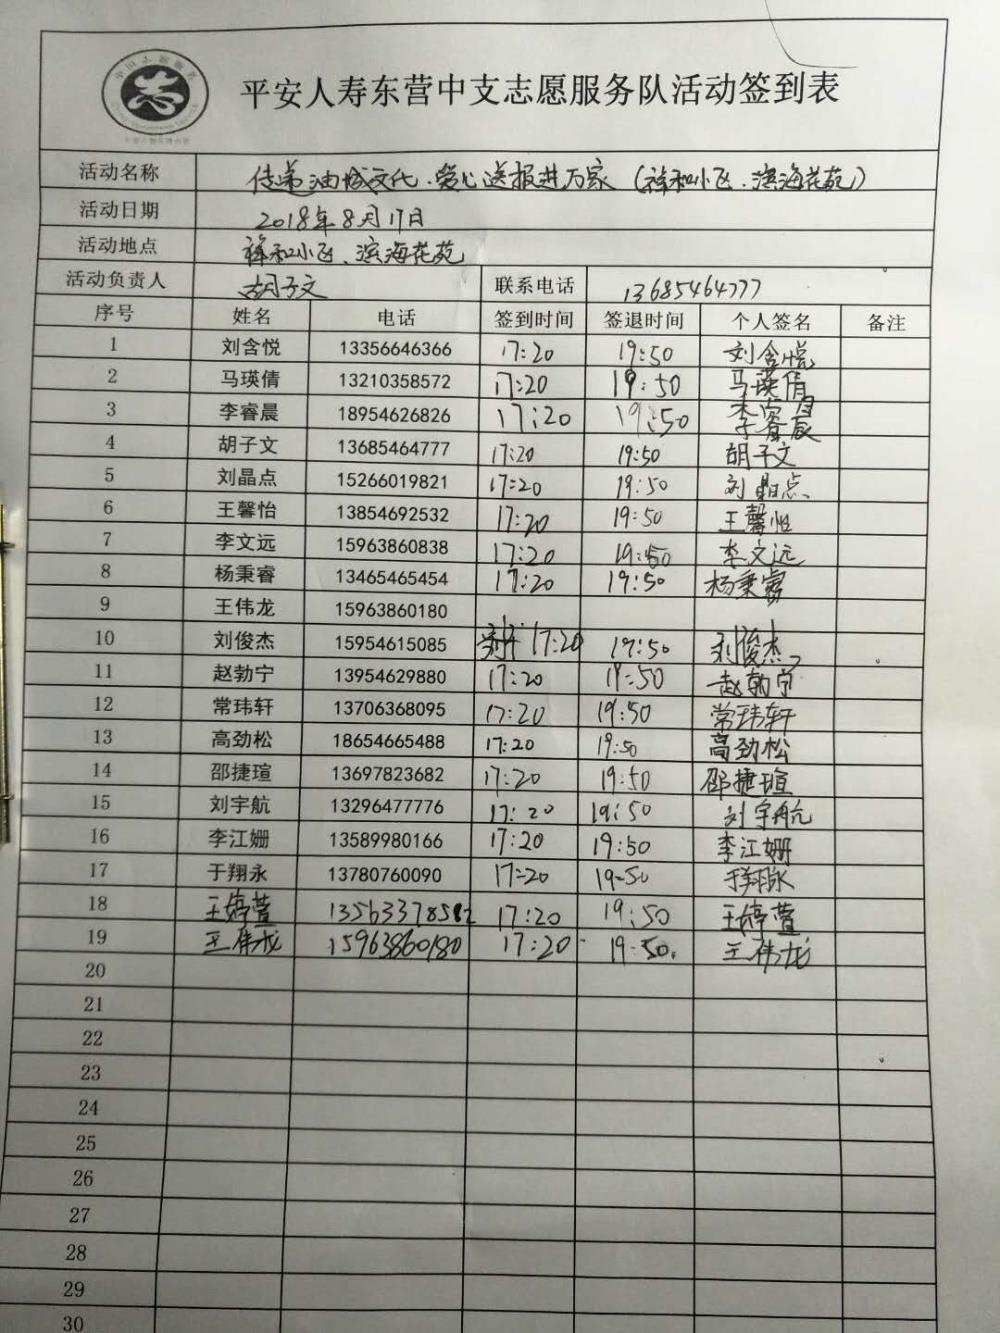 平安人寿东营中支志愿服务队活动签到表
活动名称 传递油城文化.爱心送报进万家(祥和小区.滨海花苑)
活动日期 2018年8月17日
活动地点 祥和小区、滨海花苑
活动负责人 胡子文 联系电话 13685464777
序号 姓名 电话 签到时间 签退时间 个人签名 备注
1 刘含悦 13356646366 17:20 19:50 刘含悦
2 马瑛倩 13210358572 17:20 19:50 马瑛倩
3 李睿晨 18954626826 17:20 19:50 李睿晨
4 胡子文 13685464777 17:20 19:50 胡子文
5 刘晶点 15266019821 17:20 19:50 刘晶点
6 王馨怡 13854692532 17:20 19:50 王馨怡
7 李文远 15963860838 17:20 19:50 李文远
8 杨秉睿 13465465454 17:20 19:50 杨秉睿
9 王伟龙 15963860180
10 刘俊杰 15954615085 17:20 19:50 刘俊杰
11 赵勃宁 13954629880 17:20 19:50 赵勃宁
12 常玮轩 13706368095 17:20 19:50 常玮轩
13 高劲松 18654665488 17:20 19:50 高劲松
14 邵捷瑄 13697823682 17:20 19:50 邵捷瑄
15 刘宇航 13296477776 17:20 19:50 刘宇航
16 李江姗 13589980166 17:20 19:50 李江姗
17 于翔永 13780760090 17:20 19:50 于翔永
18 王婷萱 17:20 19:50 王婷萱
19 王伟龙 15963860180 17:20 19:50. 王伟龙
20
21
22
23
24
25
26
27
28
29
30